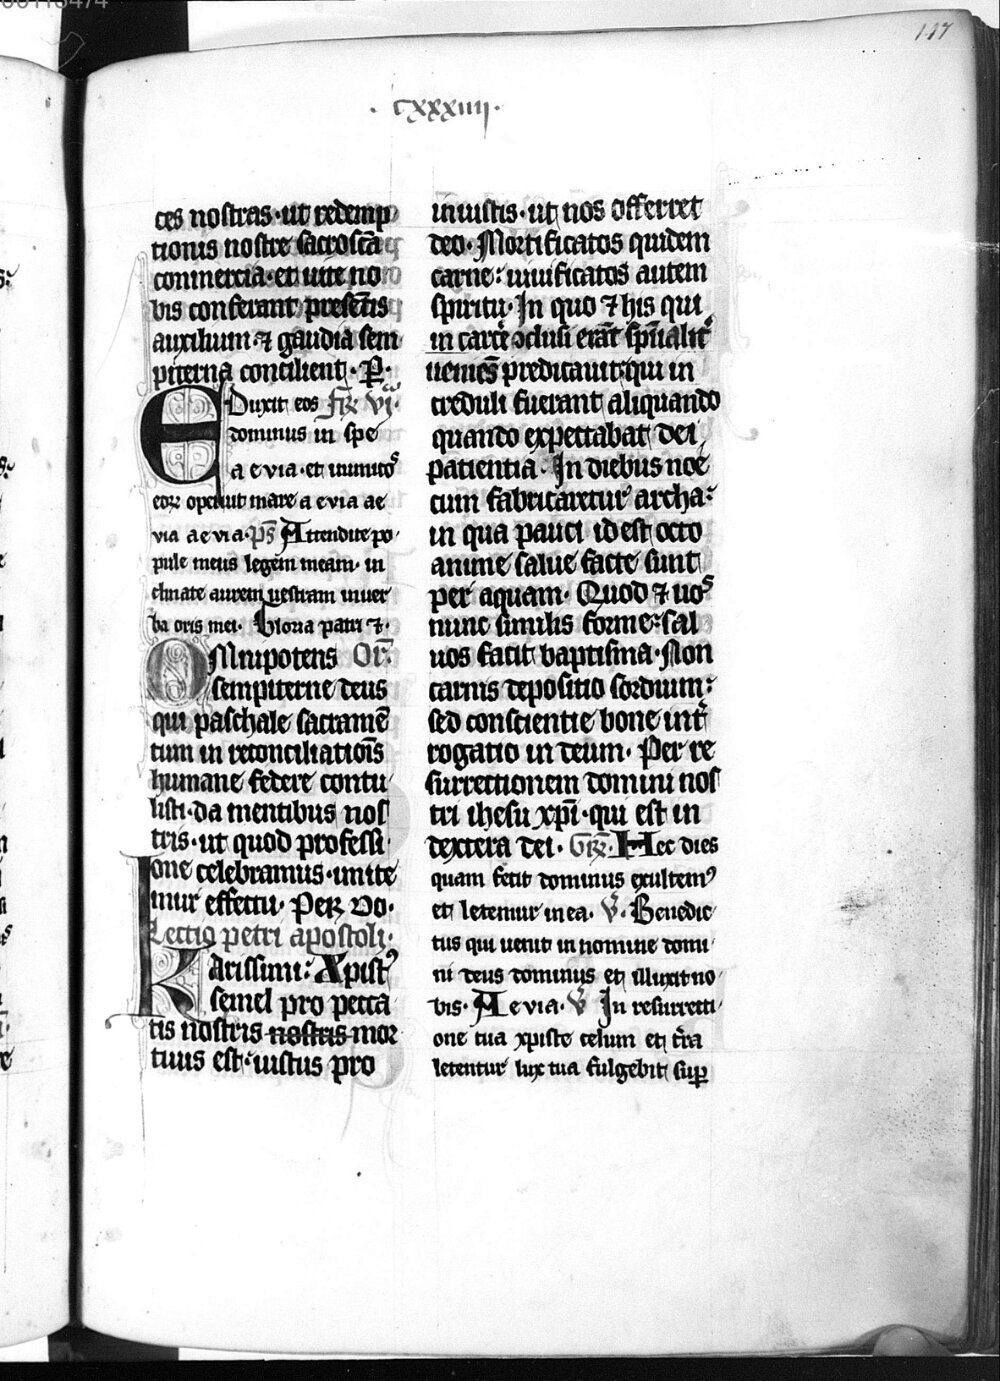 147
.cxxxiiij.
ces nostras· ut redemp
tionis nostre sacroscā
commercia· et uite no
bis conferant presētis
auxilium· ⁊ gaudia sem
piterna concilient· P̱·
EDuxit eos fr̄ vj·
dominus in spe
a e v ia· et inimicoˢ
eoꝝ operuit mare a evia ae
via aevia· ps̄ Attendite po
pule meus legem meam· in
clinate aurem uestram in uer
ba oris mei· Gloria patri ⁊·
OMnipotens Or̄·
sempiterne deus
qui paschale sacramē
tum in reconciliatiōis
humane federe contu
listi· da mentibus nos
tris· ut quod professi
one celebramus· imite
mur effectu· Per do·
Lectio petri apostoli·
KArissimi: Xpistꝰ
semel pro pecca
tis nostris nostris mor
tuus est· iustus pro
iniustis· ut nos offerret
deo· Mortificatos quidem
carne: uiuificatos autem
spiritu· In quo ⁊ his qui
in carcēꝛ ꝯclusi erāt sp̄ualit᷑
ueniēs predicauit· qui in
creduli fuerant aliquando
quando expectabat dei
patientia· In diebus noe
cum fabricaretur archa:
in qua pauci id est octo
anime salue facte sunt
per aquam· Quod ⁊ uoˢ
nunc similis forme: sal
uos facit baptisma· Non
carnis depositio sordium:
sed conscientie bone int᷑
rogatio in deum· Per re
surrectionem domini nos
tri ihesu xp̄i· qui est in
dextera dei· Gr̄· Hec dies
quam fecit dominus exultemꝰ
et letemur in ea· V̄· Benedic
tus qui uenit in nomine domi
ni deus dominus et illuxit no
bis· Aevia· V̄ In resurrecti
one tua xpiste celum et t᷑ra
letentur lux tua fulgebit suꝑ